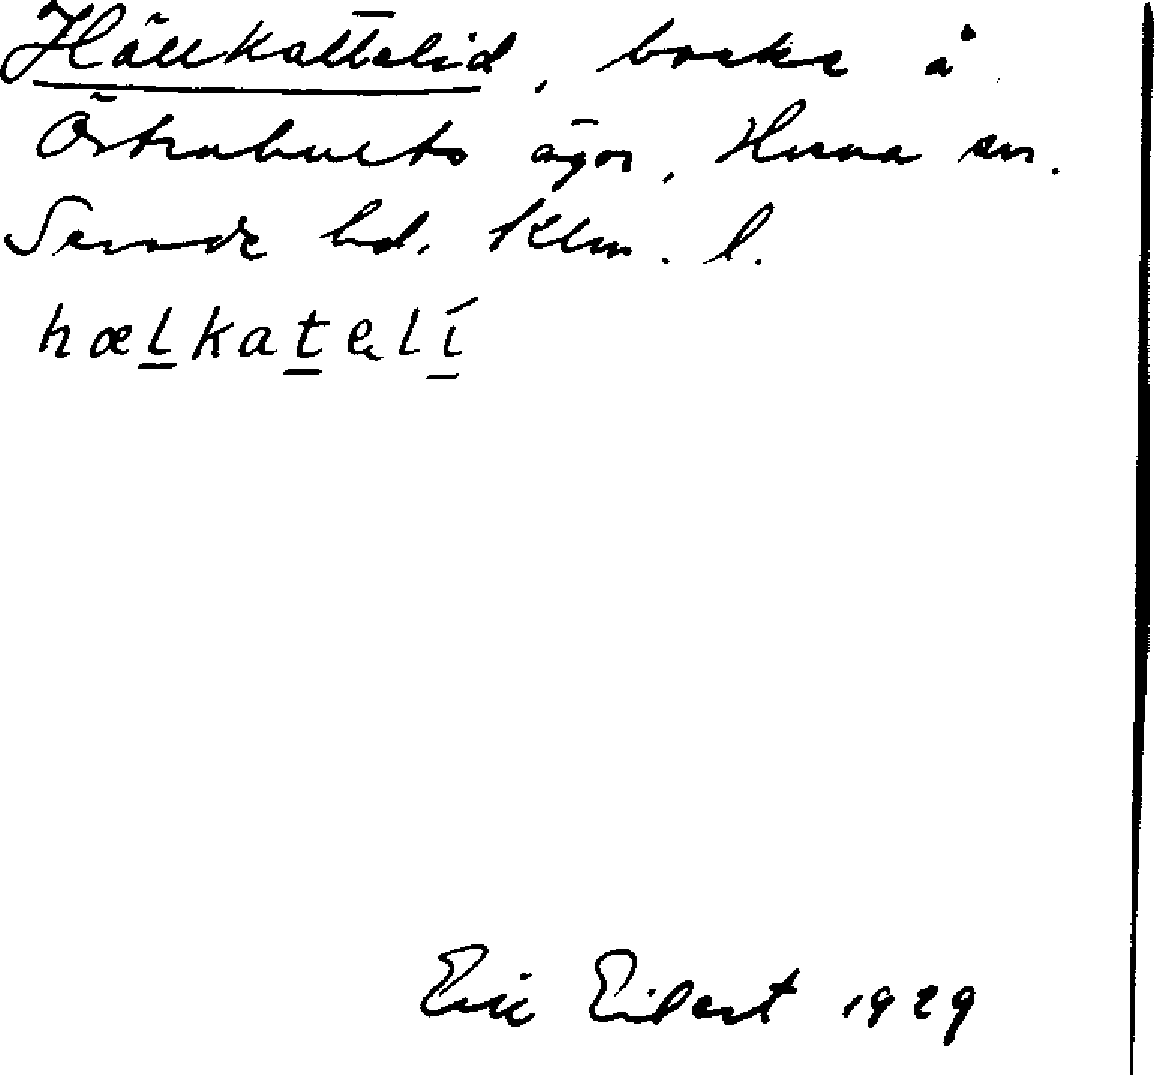 Hällkattelid, backe å
Östrahults ägor, Hvena sn.
Sevede hd. Klm. l.
hæl̲kat̲ęlí̲
Eric Eilert 1929